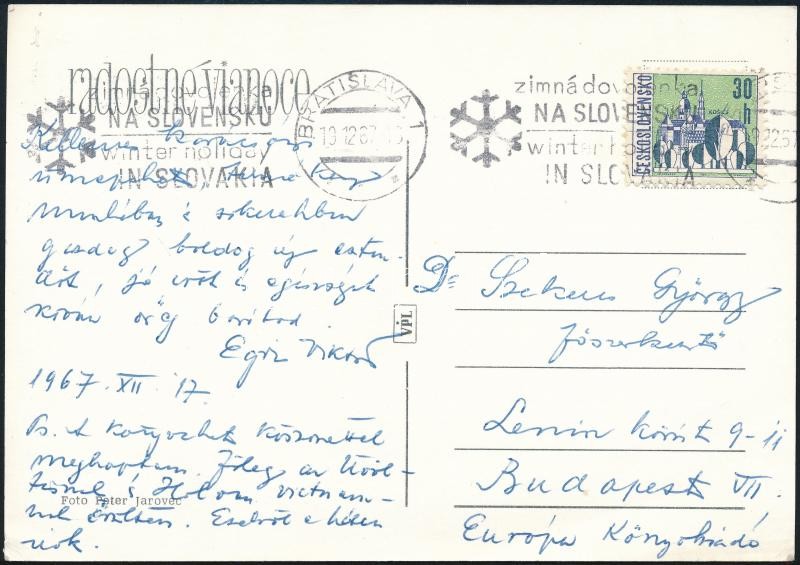 radostné vianoce
zimná dovolenka
NA SLOVENSKU
winter holiday
IN SLOVAKIA
BRATISLAVA 1
19.12.67
zimná dovolenka
NA SLOVENSKU
winter holiday
IN SLOVAKIA
ČESKOSLOVENSKO
30 h
Kellemes karácsonyi
ünnepeket,
munkában és sikerekben
gazdag boldog új eszten-
dőt, jó erőt és egészséget
kíván öreg barátod
Egri Viktor
1967. XII. 17.
Ps. A könyveket köszönettel
megkaptam. Főleg az Üvöl-
Foto Peter Jarovec
örültem. Ezekről a héten
írok.
VPL
Dr Szekeres György
főszerkesztő
Lenin körút 9-11
Budapest VII.
Európa Könyvkiadó